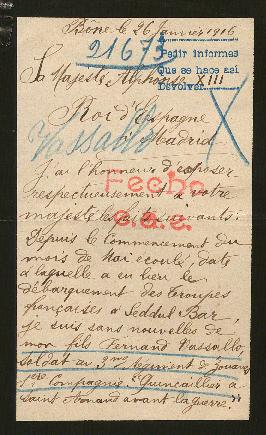 Bône le 26 Janvier 1916
21675
Pedir informes
Que se hace así
Devolver
Sa Majesté Alphonse XIII
Roi d'Espagne
Madrid
Vassallo
J'ai l'honneur d'exposer
respectueusement à votre
majesté les faits suivants:
Fecho
Depuis le commencement du
mois de Mai écoulé, date
à laquelle a eu lieu le
débarquement des Troupes
françaises à Seddul Bar,
je suis sans nouvelles de
mon fils Fernand Vassallo,
soldat au 3me Régiment de Zouaves
1ère Compagnie. "Quincailler à
Saint Arnaud avant la guerre."